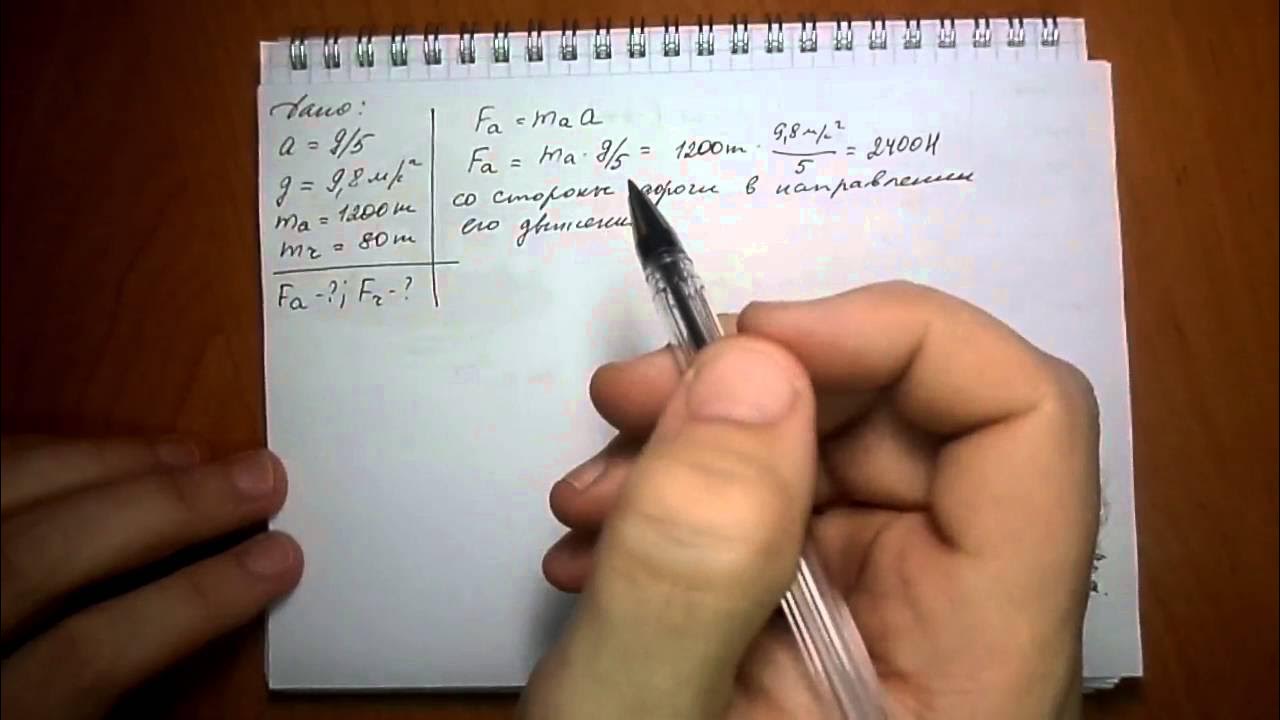 Дано:
a = g/5
g = 9,8 м/с²
mа = 1200 т
mг = 80 т
Fа - ?; Fг - ?
Fа = mа a
Fа = mа · g/5 = 1200т · 9,8 м/с² / 5 = 2400 Н
со стороны дороги в направлении
его движени